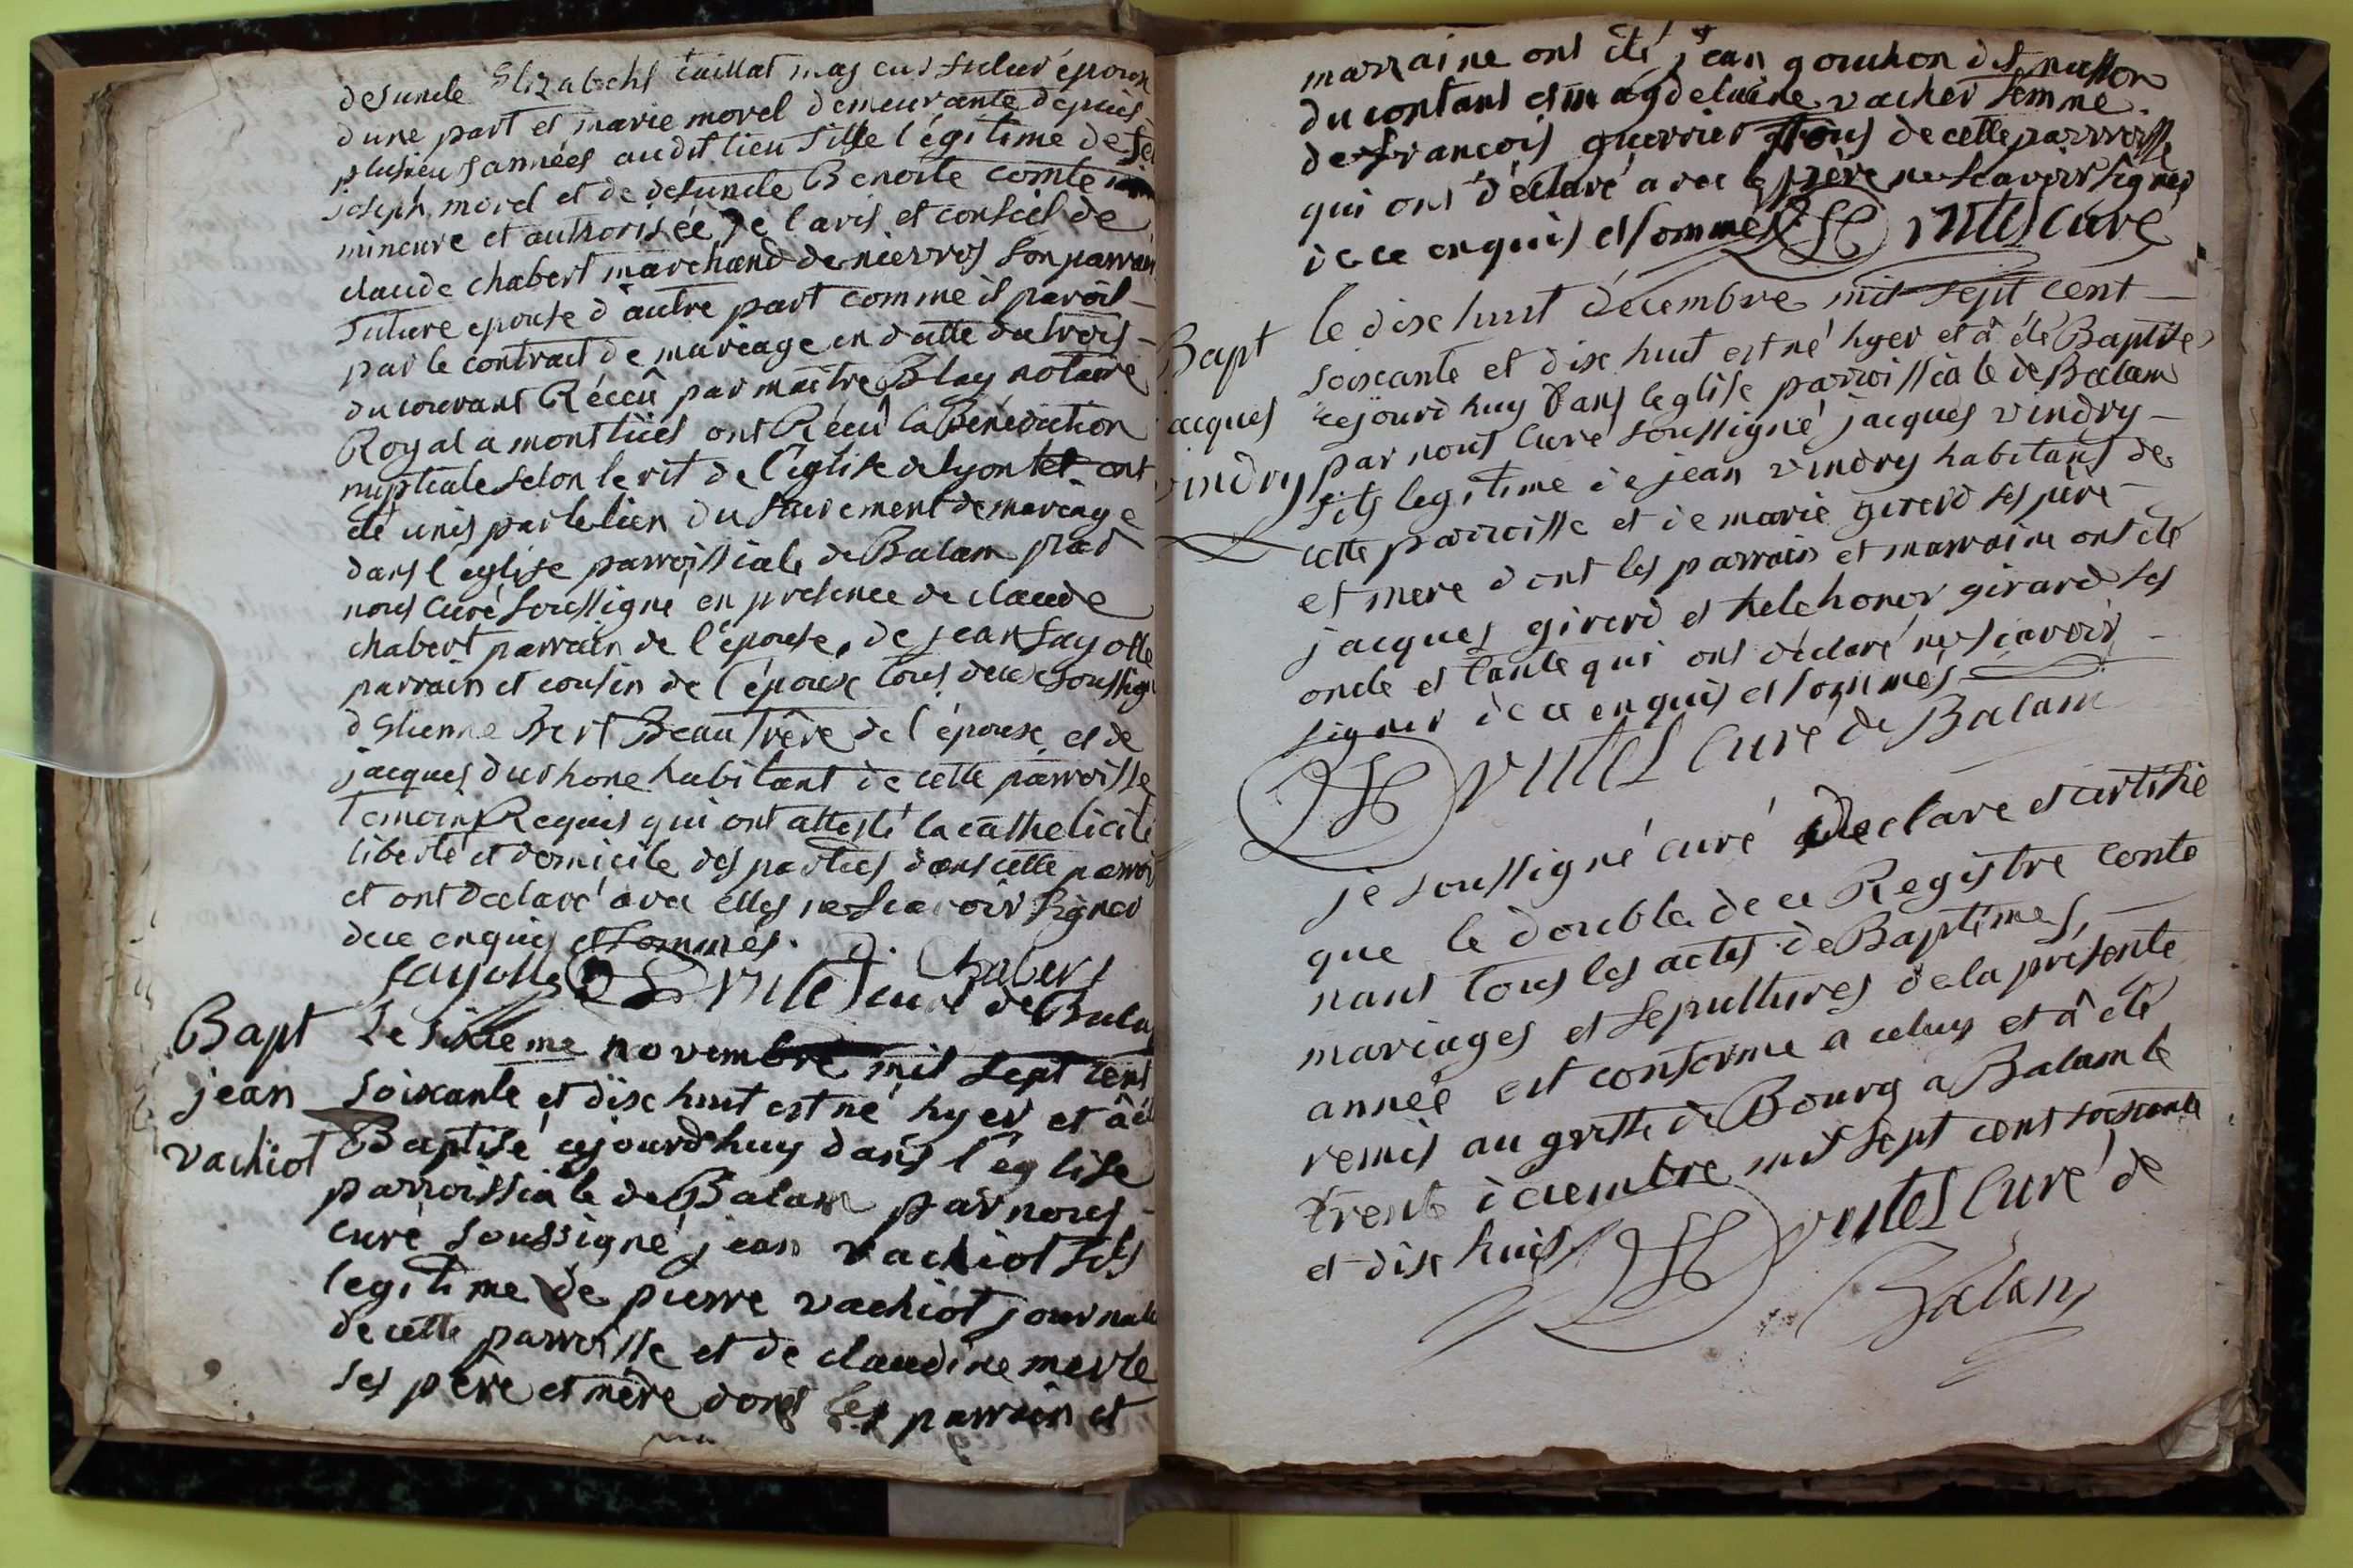 defuncte Elizabeht Caillat majeur futur époux
dune part et marie morel demeurante depuis
plusieurs années audit lieu fille légitime de feu
joseph morel et de defuncte Benoite comte
mineure et authorisée de l'avis et conseil de
claude chabert marchand de nierros son parrain
future epouse d'autre part comme il paroit
par le contract de mariage en datte du trois
du courant Réccû par maitre Blay notaire
Royal a montluel ont Récû la Bénédiction
nuptiale selon le rit de l'église de lyon et ont
été unis par le lien du sacrement de mariage
dans l'eglise parroissiale de Balam par
nous curé soussigné en presence de claude
chabert parrain de l'épouse, de jean fayolle
parrain et cousin de l'épouse tous deux soussig
d'Etienne Bert Beaufrère de l'épouse et de
jacques duthone habitant de cette parroisse
temoins Requis qui ont attesté la catholicité
liberté et domicile des parties dans cette parroi
et ont declaré avec elles ne scavoir signer
de ce enquis et sommés.
fayolle C. Chabert
vitte curé de Bala
Bapt Le sixieme novembre mil sept cent
jean soixante et dixhuit est né hyer et à été
vachiot Baptisé cejourdhuy dans l'église
parroissiale de Balam par nous
curé soussigné jean vachiot fils
legitime de pierre vachiot journali
de cette parroisse et de claudine merle
ses père et mère dont les parrain et
marraine ont été jean gouchon dit
du contant et magdelaine vacher femme
de francois guerrier tous de cette parroisse
qui ont déclaré avec le père ne scavoir signer
de ce enquis et sommés vittes curé
le dixhuit décembre mil sept cent
Bapt soixante et dix huit est né hyer et à été Baptisé
acques cejourdhuy dans leglise parroissiale de Balam
par nous curé soussigné jacques vindry
indry fils legitime de jean vindry habitant de
cette parroisse et de marie girerd ses père
et mere dont les parrain et marraine ont été
jacques girerd et helehonor girard ses
oncle et tante qui ont déclaré ne scavoir
signer de ce enquis et sommés
vittes curé de Balam
je soussigné curé declare et certifie
que le double de ce Registre conte
nant tous les actes de Baptêmes,
mariages et sepultures de la présente
année est conforme a celuy et à été
remis au greffe de Bourg a Balam le
trente décembre mil sept cent soixante
et dix huit vittes curé de
Balan